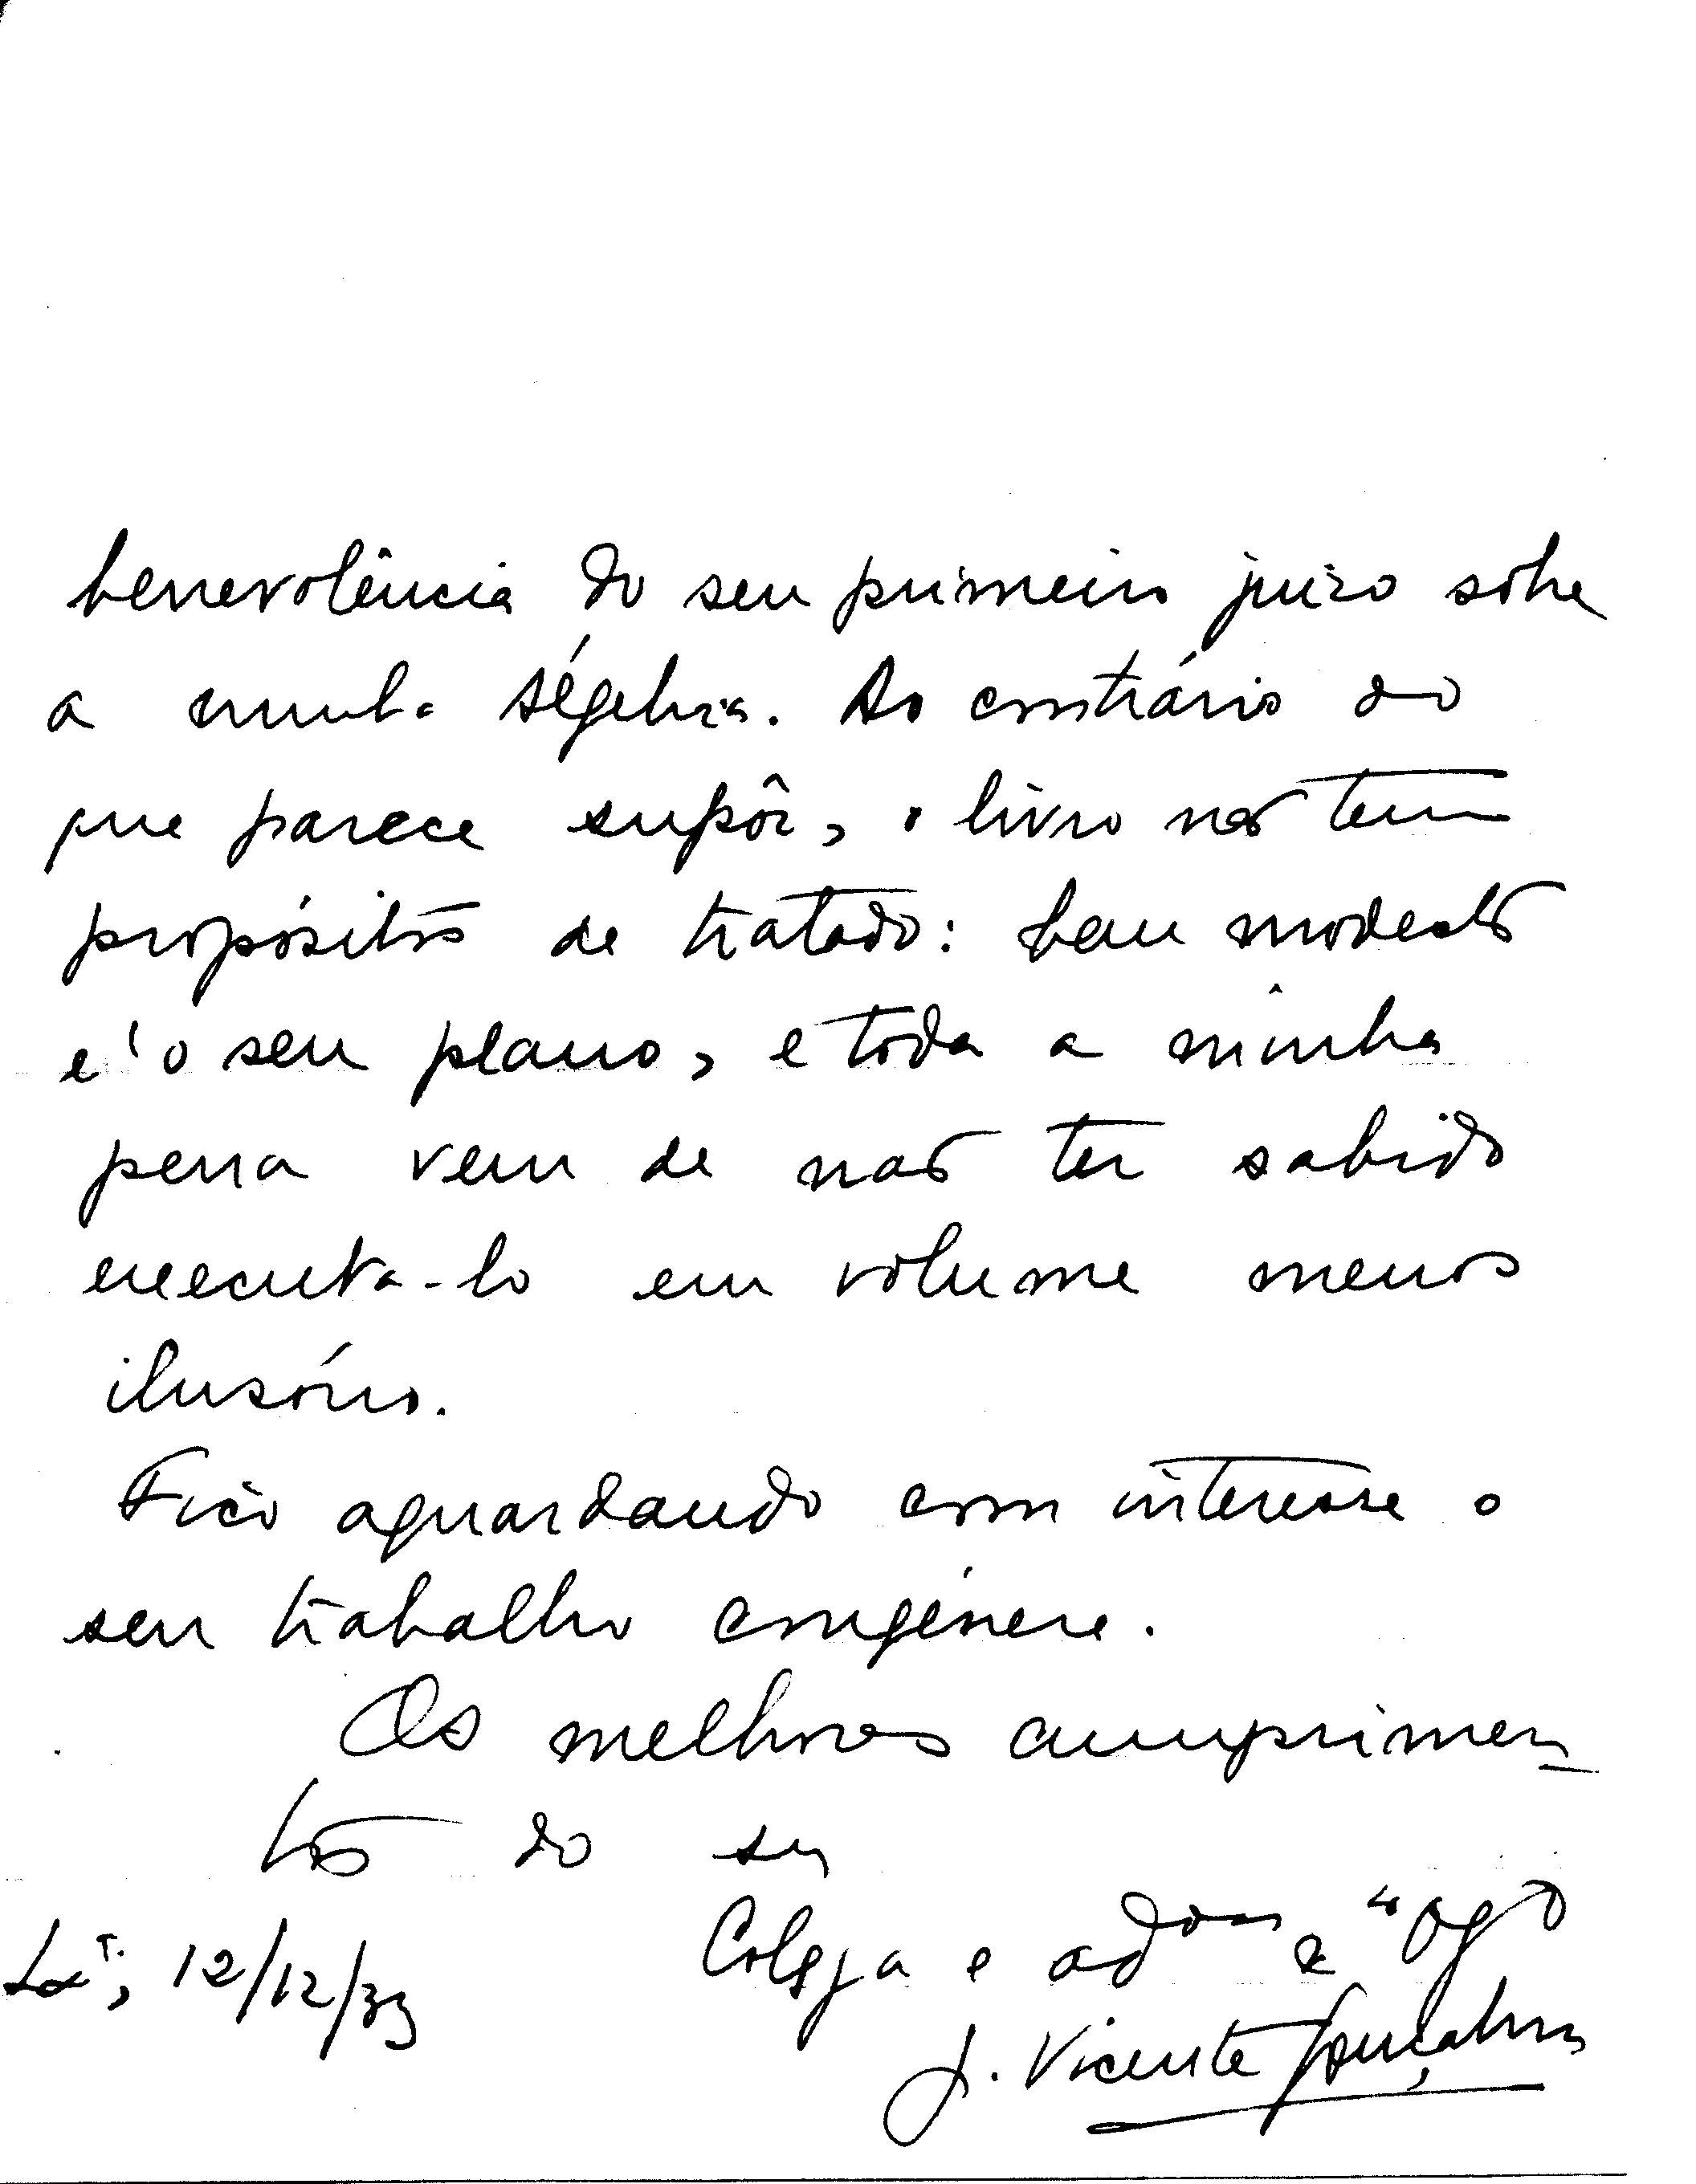 benevolência do seu primeiro juizo sôbre
a minha Álgebra. Ao contrário do
que parece supôr, o livro não tem
propósitos de tratado: bem modesto
é o seu plano, e toda a minha
pena vem de não ter sabido
executa-lo em volume menos
ilusório.
Fico aguardando com interesse o
seu trabalho congénere.
Os melhores cumprimen-
tos do seu
Colega e ador e
Lxª, 12/12/33
J. Vicente Gonçalves